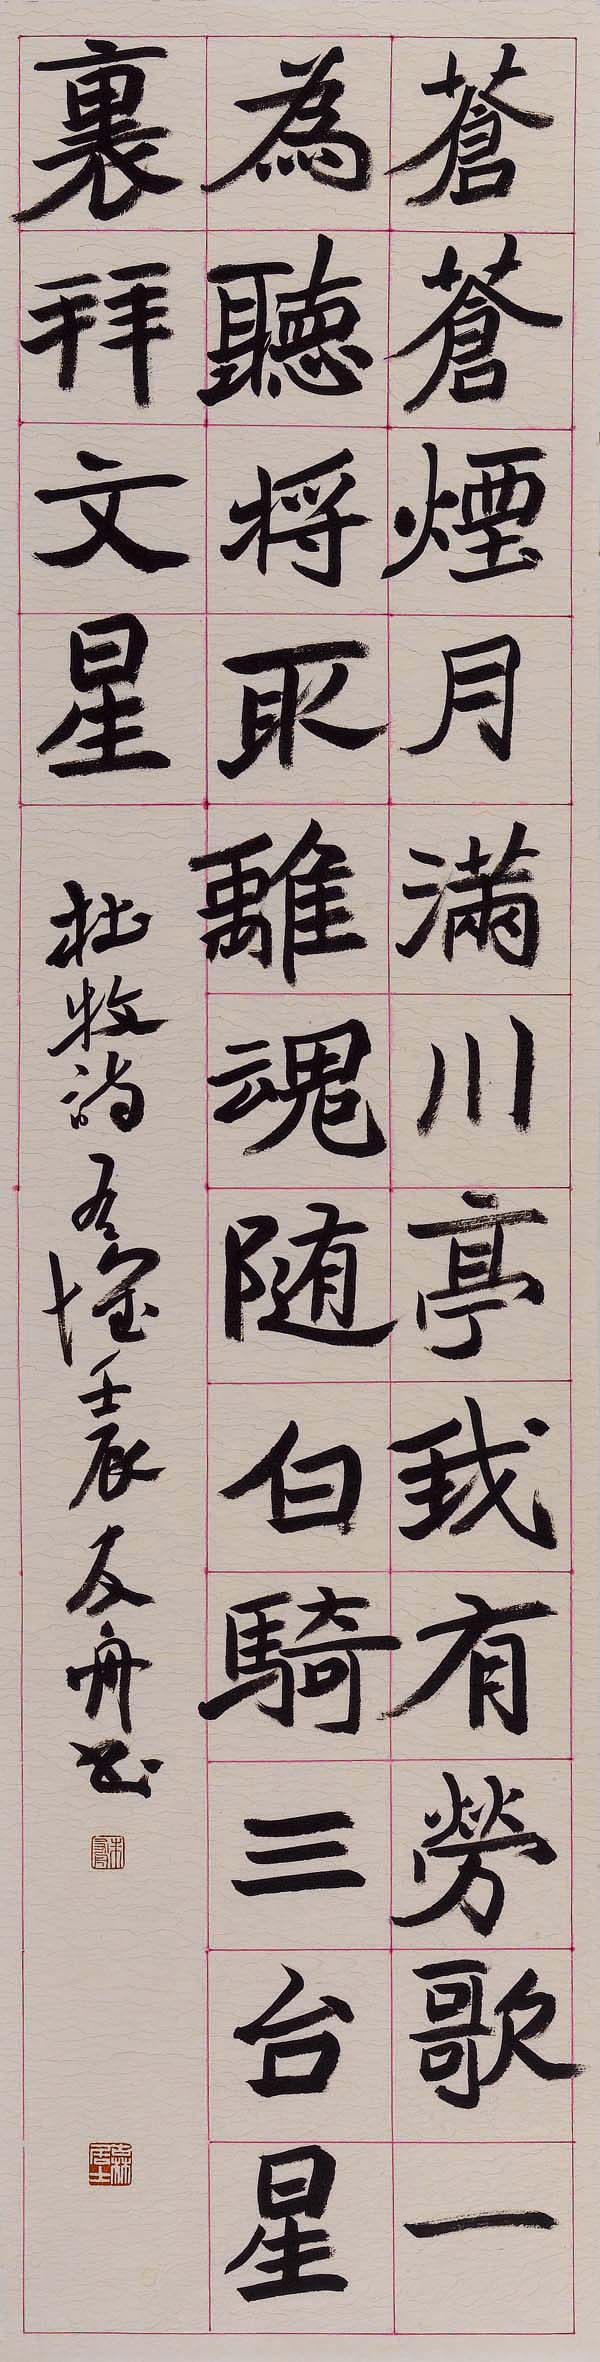 蒼蒼煙月滿川亭我有勞歌一
為聽将取離魂随白騎三台星
裏拜文星
杜牧詩 壬辰友舟书